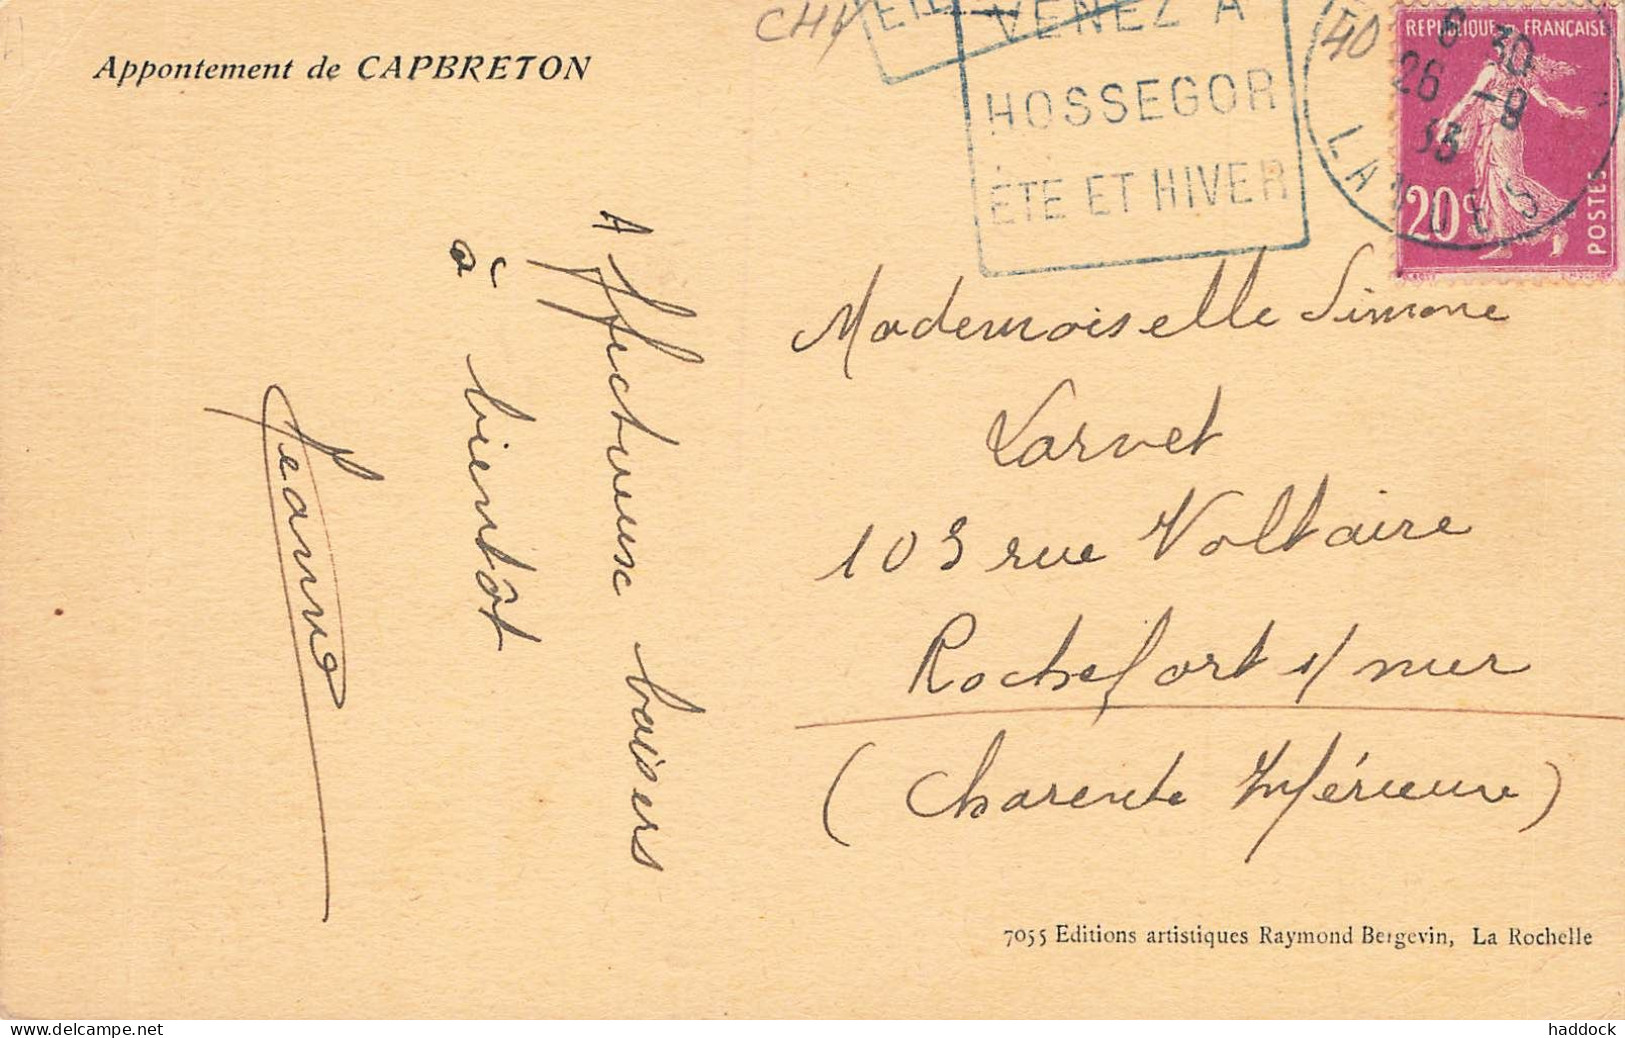 Appontement de CAPBRETON
VENEZ A
HOSSEGOR
ÉTE ET HIVER
40
REPUBLIQUE FRANÇAISE
20c
POSTES
6 30
26 -8
35
LANDES
Affectueux baisers
à bientôt
Mademoiselle Simone
Larvet
103 rue Voltaire
Rochefort s/ mer
(Charente Inférieure)
7055 Editions artistiques Raymond Bergevin, La Rochelle
www.delcampe.net
haddock